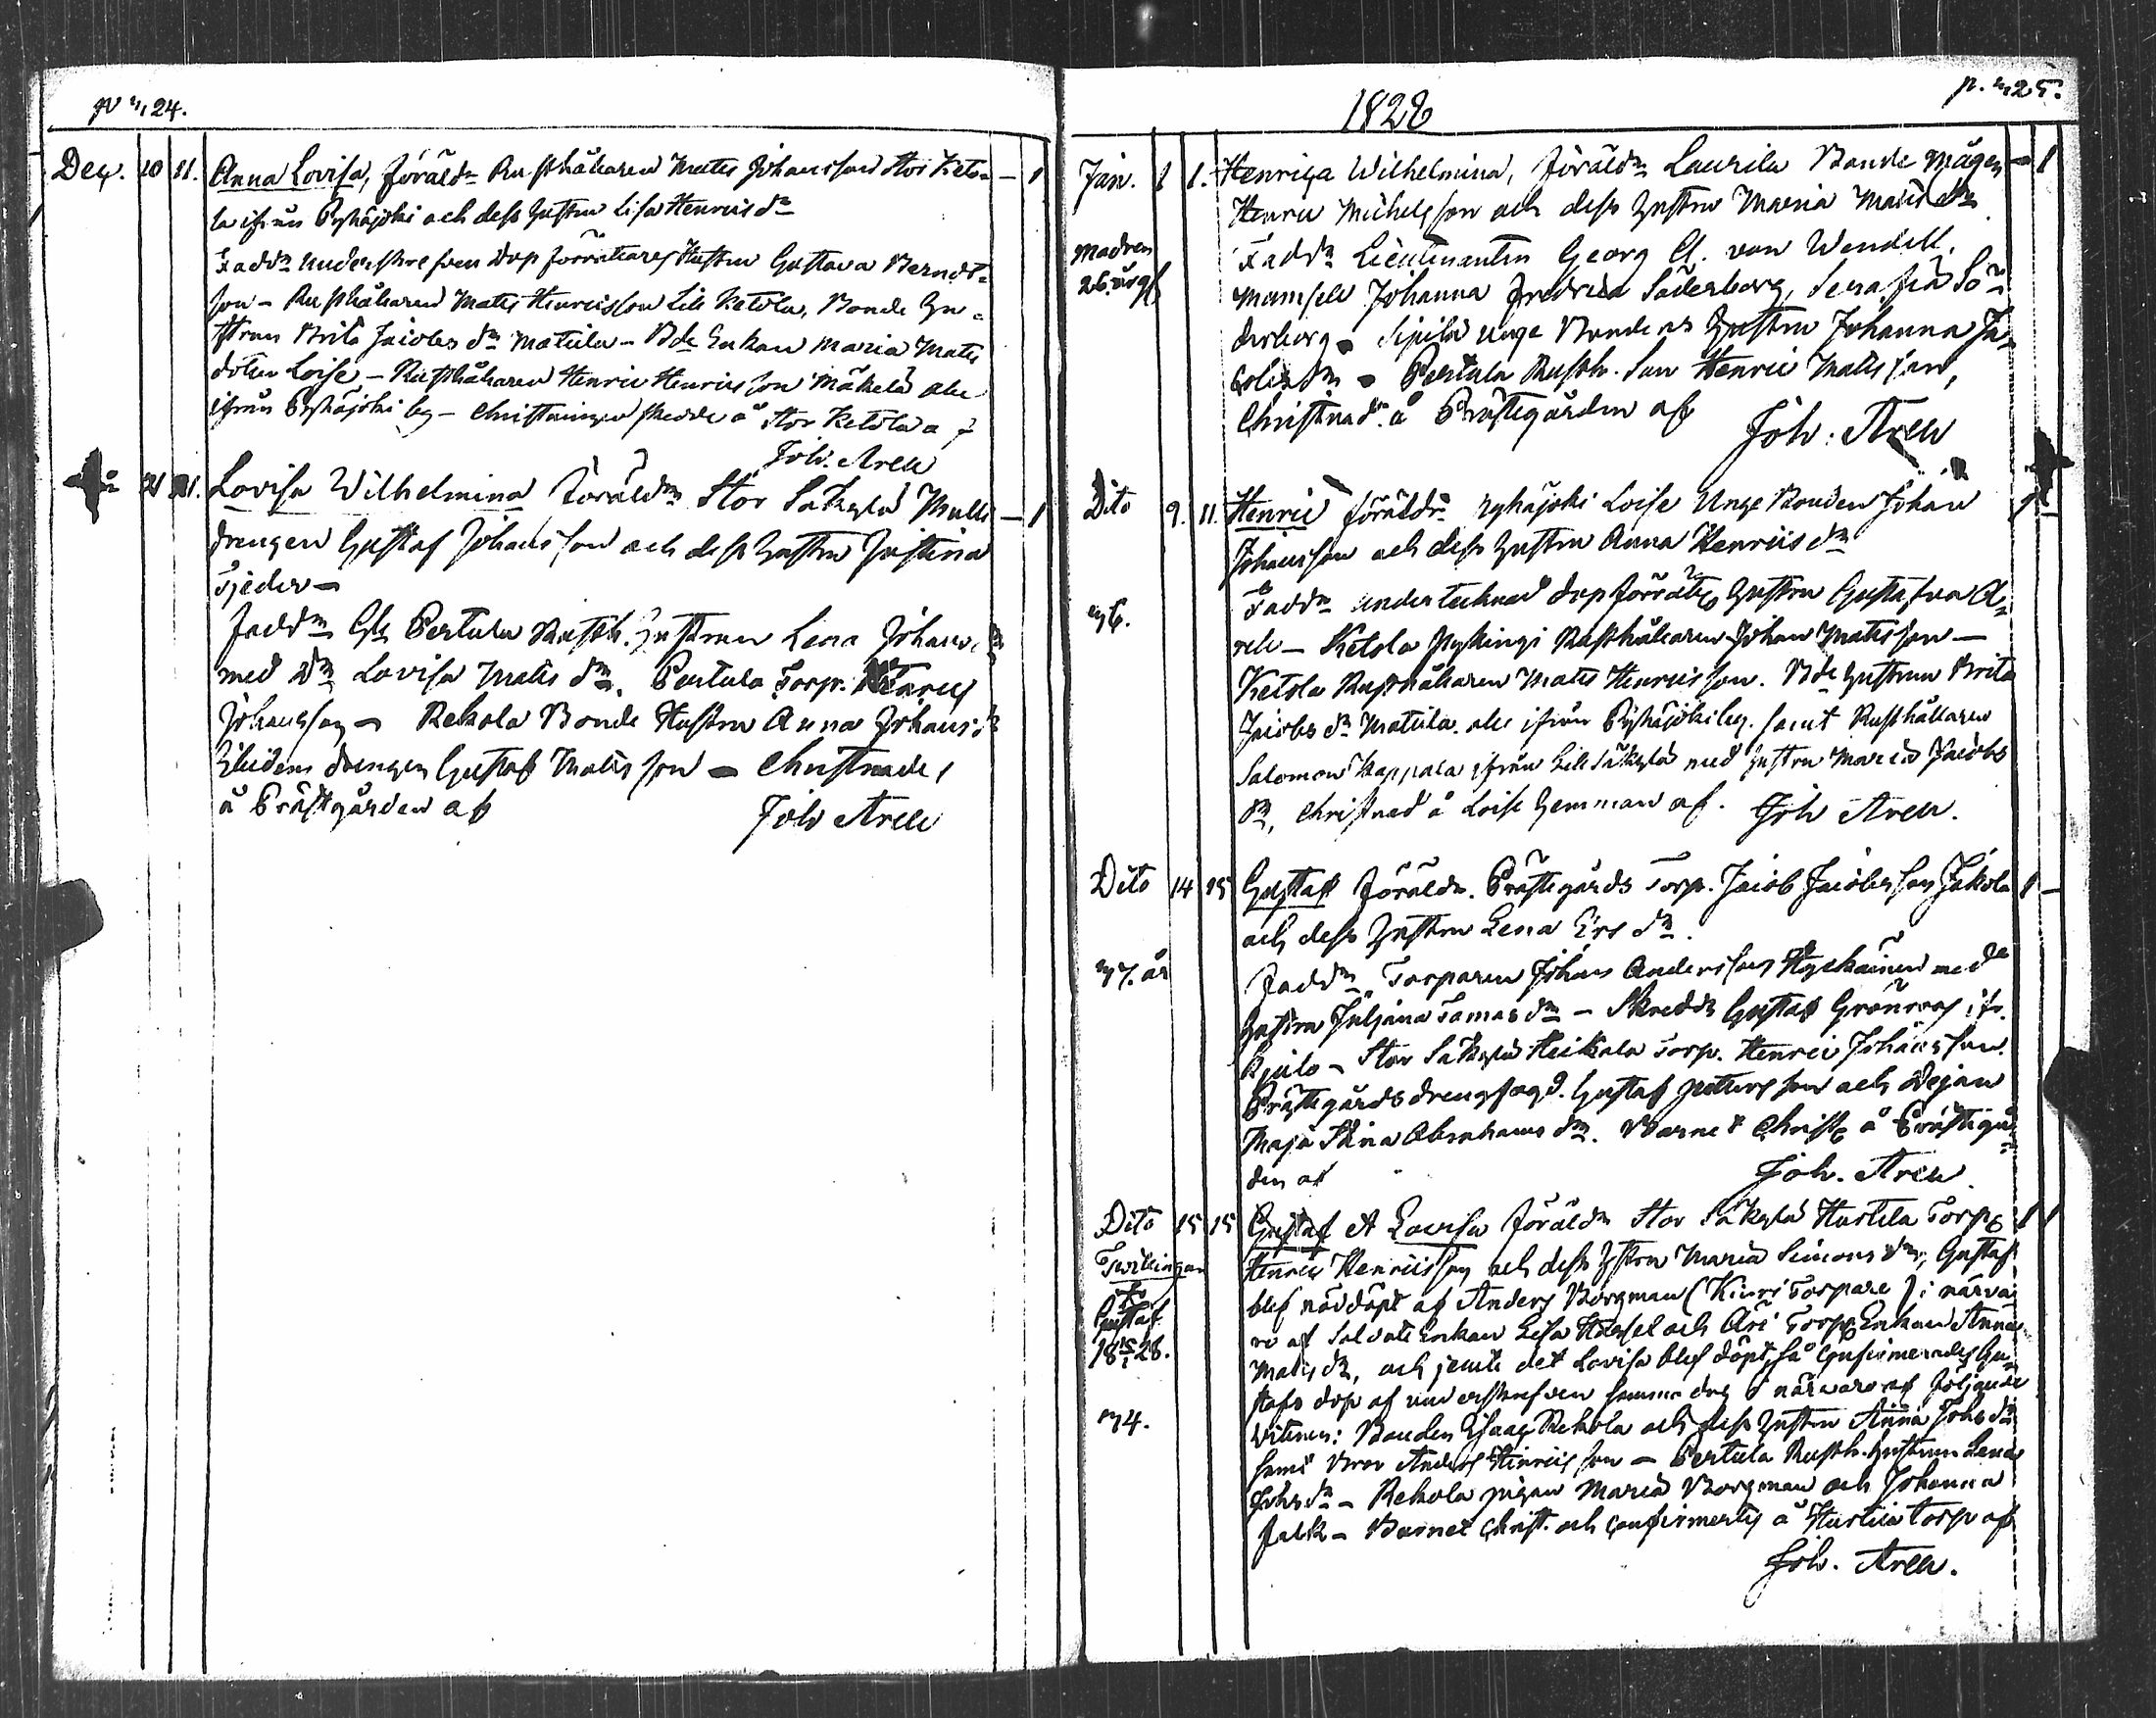 p. 24.
Dec. 10 11. Anna Lovisa, föräldr Rusthållaren Mats Johansson Stor Keto= — 1
la ifrån Pyhäjoki och dess hustru Lisa Henricsdr
Faddr underskrefven dopförrättares Hustru Gustava Berndt=
son — Rusthållaren Mats Henricsson Lill Ketola, Bonde Hu=
strun Brita Jacobs dr Mattila — Bde Enkan Maria Mats
dotter Loise — Rusthållaren Henric Henricsson Mäkelä alla
ifrån Pyhäjoki by — Christningen skedde å Stor Ketola af
Joh. Arell
21 21. Lovisa Wilhelmina föräldr Stor Säkylä — 1
drengen Gustaf Johansson och dess hustru Justina
Tjeder —
Faddr Pertula Rusth. hustrun Lena Johans dr
med dr Lovisa Mats dr. Pertula Torp. Henric
Johansson — Rekola Bonde Hustru Anna Johans dr
drengen Gustaf Matsson — Christnades
å Prästgården af Joh Arell
1828
p. 25.
Jan. 1 1. Henrica Wilhelmina, föräldr Laurila Bonde Mågen — 1
Henric Michelsson och dess hustru Maria Mats dr
Modren Faddr Lieutenanten Georg A. von Wendell,
26. årg Mamsell Johanna Fredrica Söderborg, Serafia Sö=
derborg — Sipilä unge Bondens hustru Johanna Ja=
cobs dr — Pertula Rusth. Son Henric Matsson,
Christnad. å Prästegården af
Joh: Arell
Dito 9. 11. Henric föräldr Pyhäjoki Loise Unge Bonden Johan 1 —
Johansson och dess hustru Anna Henricsdr
m 6. Faddr undertecknad dopförrätt. hustru Gustafva A=
rell — Ketola Pyhingi Rusthållaren Johan Matsson —
Ketola Rusthållaren Mats Henricsson. Bde hustrun Brita
Jacobs dr Mattila alla ifrån Pyhäjoki by. samt Rusthållaren
Salomon Kappala ifrån Lill Säkylä med hustru Maria Jacobs
dr, Christnad å Loise hemman af. Joh Arell.
Dito 14 15 Gustaf föräldr. Prästegårds Torp. Jacob Jacobsson Jakola 1 —
och dess hustru Lena Ers dr.
m 7. år Faddr Torparen Johan Andersson med
hustru Juljana Tomas dr — Skreddr Gustaf Grönroos ifr.
Kjulo — Stor Säkylä Heikola Torp. Henric Johansson
Prästegårds drengfogd. Gustaf Pettersson och Pigan
Maja Stina Abrahams dr. Barnet Christ. å Prästegår=
den af Joh. Arell.
Dito 15 15 Gustaf et Lovisa föräldr Stor Säkylä Hurtila Torp. 1 1
Twillingar Henric Henricsson och dess hustru Maria Simons dr, Gustaf
Gustaf blef nöddöpt af Anders Borgman (Kinni Torpare) i närva
18 15/1 28. ro af Soldate Enkan Lisa och Äri Torp. Enkan Anna
Mats dr, och jemte det Lovisa blef döpt, så confirmerades Gu=
m 4. stafs dop af underskrefven samma dag i närvaro af följande
witnen: Bonden Isaac Rekola och dess hustru Anna Johs dr
Anders Henricsson — Pertula Rusth. hustrun Lena
Johs dr — Rekola pigan Maria Borgman och Johanna
Falk — Barnet Christ. och confirmertes å Hurtila torp af
Joh. Arell.